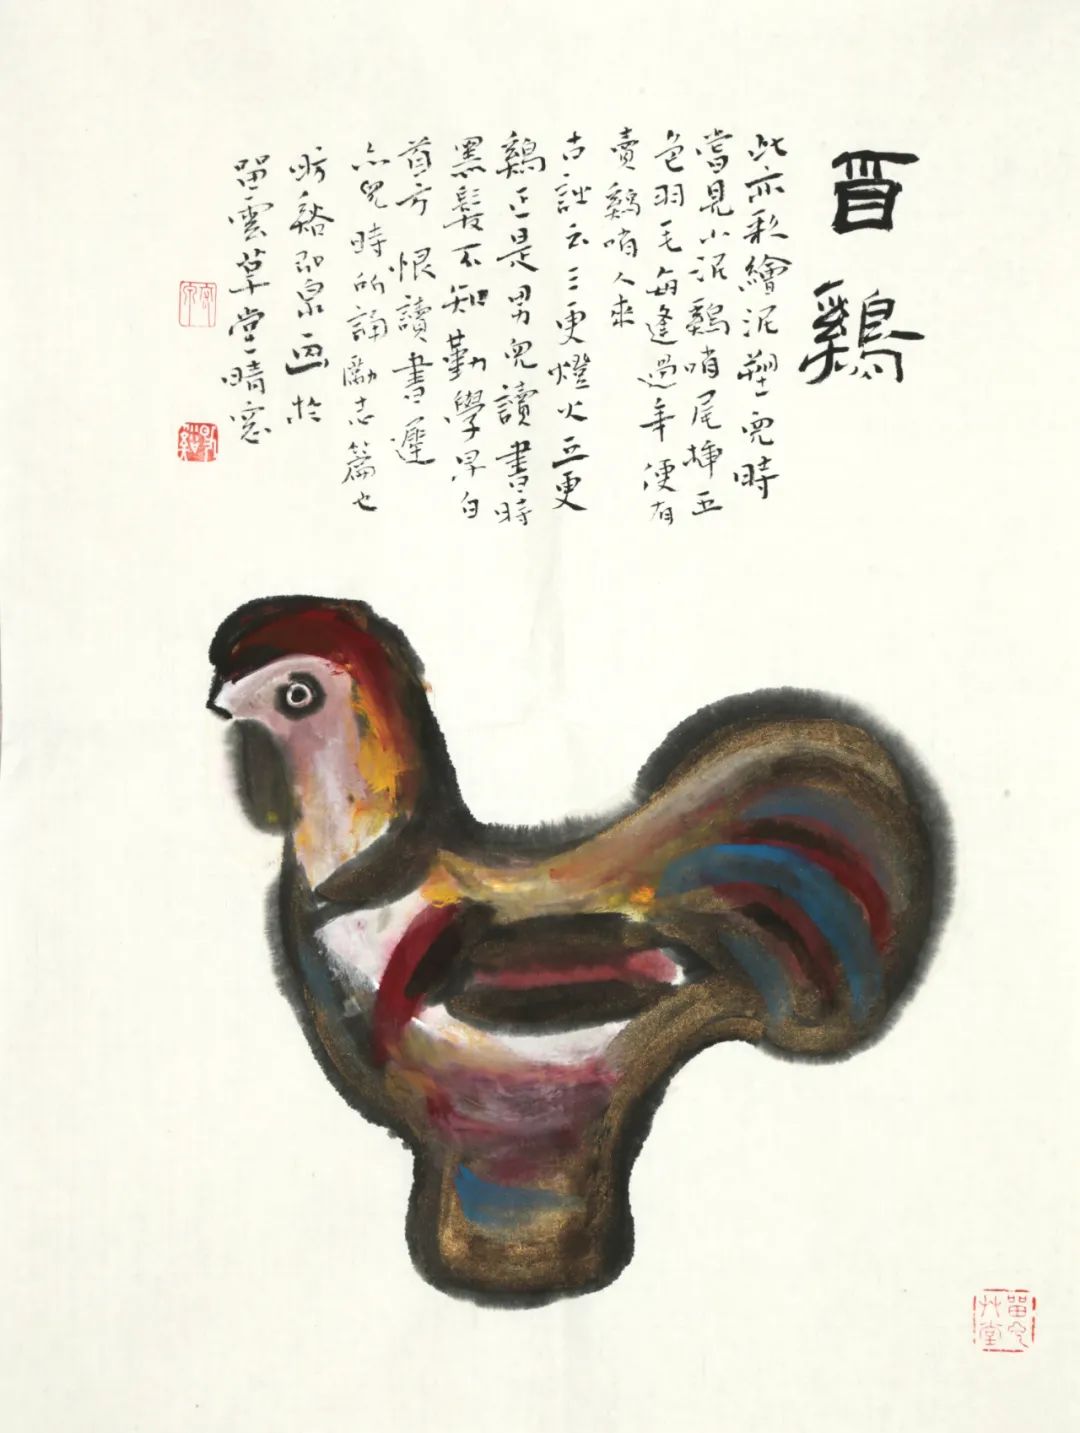 酉鷄
此亦彩繪泥塑兒時
當見小泥鷄哨尾插五
色羽毛每逢過年便有
賣鷄哨人來
古云三更燈火五更
鷄正是男兒讀書時
黑髮不知勤學早白
首方恨讀書遲
亦兒時所誦勵志篇也
昉谿画於
留雲草堂晴窓
留云艸堂